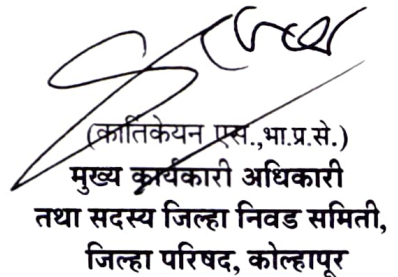 (कार्तिकेयन एस.,भा.प्र.से.)
मुख्य कार्यकारी अधिकारी
तथा सदस्य जिल्हा निवड समिती,
जिल्हा परिषद, कोल्हापूर